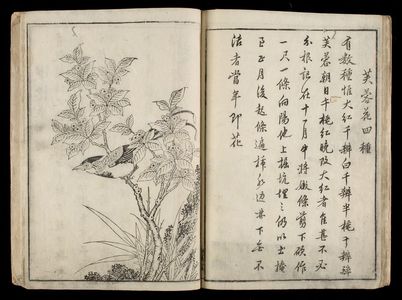 芙蓉花四種
有數種惟大紅千瓣白千瓣半桃千瓣醉
芙蓉朝白午桃紅晚改大紅者佳甚不必
分根記在十一月中將嫩條剪下砍作
一尺一條向陽地上掘坑埋之仍以土掩
至正月後起條遍種水邊林下無不
活者當年即花